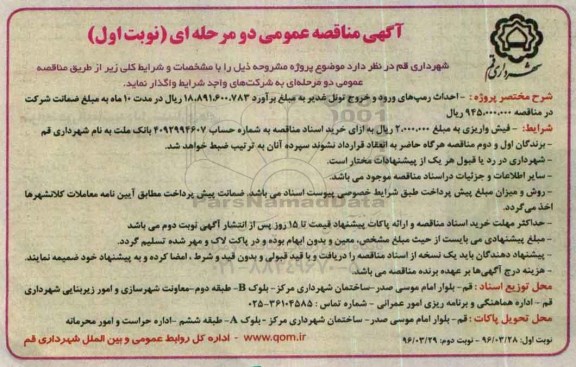 آگهی مناقصه عمومی دو مرحله ای (نوبت اول)
شهرداری قم
شهرداری قم در نظر دارد موضوع پروژه مشروحه ذیل را با مشخصات و شرایط کلی زیر از طریق مناقصه
عمومی دو مرحله‌ای به شرکت‌های واجد شرایط واگذار نماید.
شرح مختصر پروژه : - احداث رمپ‌های ورود و خروج تونل غدیر به مبلغ برآورد ۱۸،۸۹۱،۶۰۰،۷۸۳ ریال در مدت ۱۰ ماه به مبلغ ضمانت شرکت
در مناقصه ۹۴۵،۰۰۰،۰۰۰ ریال
شرایط: - فیش واریزی به مبلغ ۲،۰۰۰،۰۰۰ ریال به ازای خرید اسناد مناقصه به شماره حساب ۴۰۹۲۹۹۴۶۰۷ بانک ملت به نام شهرداری قم
- برندگان اول و دوم مناقصه هرگاه حاضر به انعقاد قرارداد نشوند سپرده آنان به ترتیب ضبط خواهد شد.
- شهرداری در رد یا قبول هر یک از پیشنهادات مختار است.
- سایر اطلاعات و جزئیات دراسناد مناقصه موجود می باشد.
- روش و میزان مبلغ پیش پرداخت طبق شرایط خصوصی پیوست اسناد می باشد. ضمانت پیش پرداخت مطابق آیین نامه معاملات کلانشهرها
اخذ می‌گردد.
- حداکثر مهلت خرید اسناد مناقصه و ارائه پاکات پیشنهاد قیمت تا ۱۵ روز پس از انتشار آگهی نوبت دوم می باشد
- مبلغ پیشنهادی می بایست از حیث مبلغ مشخص، معین و بدون ابهام بوده و در پاکت لاک و مهر شده تسلیم گردد.
- پیشنهاد دهندگان باید یک نسخه از اسناد مناقصه را دریافت و با قید قبولی و بدون قید و شرط ، امضا کرده و به پیشنهاد خود ضمیمه نمایند.
- هزینه درج آگهی‌ها بر عهده برنده مناقصه می باشد.
محل توزیع اسناد : قم- بلوار امام موسی صدر -ساختمان شهرداری مرکز- بلوک B- طبقه دوم-معاونت شهرسازی و امور زیربنایی شهرداری
قم - اداره هماهنگی و برنامه ریزی امور عمرانی - شماره تماس : ۳۶۱۰۴۵۸۵-۰۲۵
محل تحویل پاکات : قم- بلوار امام موسی صدر- ساختمان شهرداری مرکز - بلوک A- طبقه ششم -اداره حراست و امور محرمانه
نوبت اول: ۹۶/۰۳/۲۸ - نوبت دوم: ۹۶/۰۳/۲۹
www.qom.ir - اداره کل روابط عمومی و بین الملل شهرداری قم
ParsNamadData